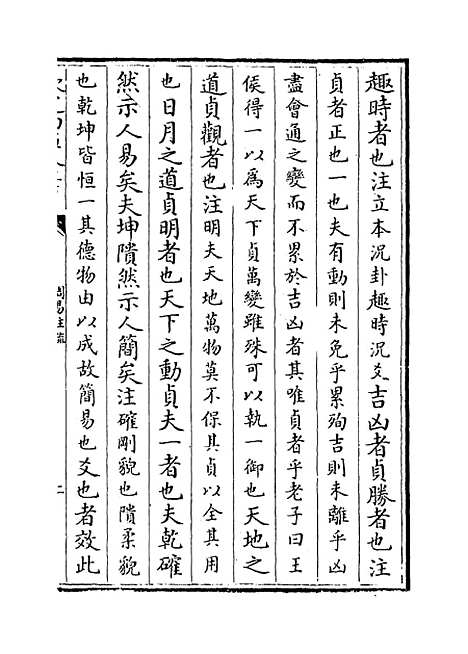 趣時者也注立本况卦趣時况爻吉凶者貞勝者也注
貞者正也一也夫有動則未免乎累殉吉則未離乎凶
盡會通之變而不累於吉凶者其唯貞者乎老子曰王
侯得一以為天下貞萬變雖殊可以執一御也天地之
道貞觀者也注明夫天地萬物莫不保其貞以全其用
也日月之道貞明者也天下之動貞夫一者也夫乾確
然示人易矣夫坤隤然示人簡矣注確剛貌也隤柔貌
也乾坤皆恒一其德物由以成故簡易也爻也者效此
周易注疏
二